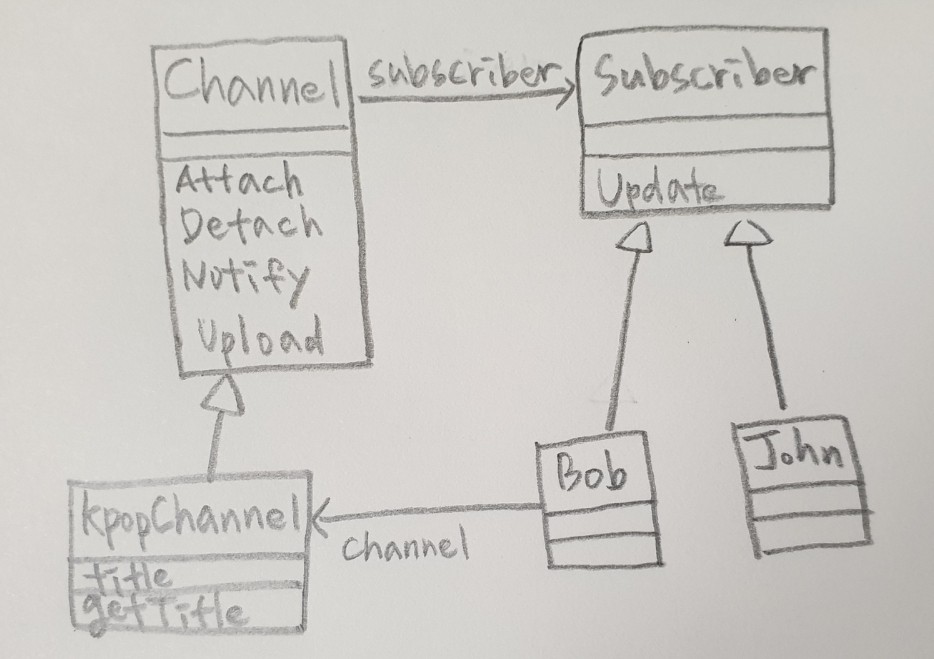 Channel
Attach
Detach
Notify
Upload
subscriber
Subscriber
Update
kpopChannel
title
getTitle
channel
Bob
John